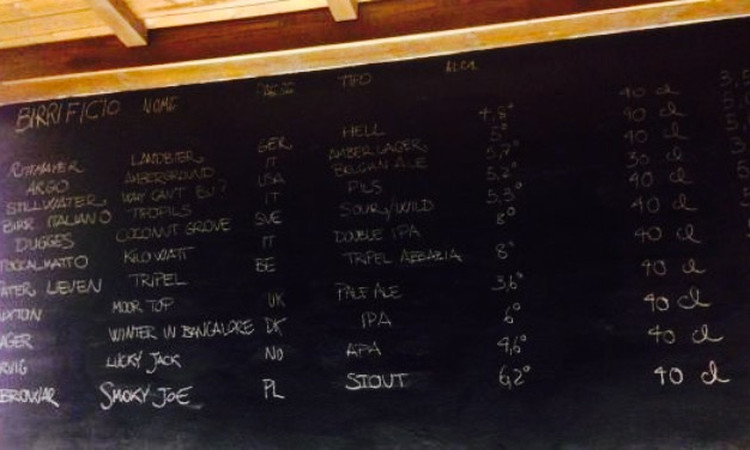 BIRRIFICIO NOME PAESE TIPO ALCOL
RITTMAYER LANDBIER GER HELL 4,8° 40 cl
ARGO AMBERGROUND IT AMBER LAGER 5° 40 cl
STILLWATER WHY CAN'T BU? USA BELGIAN ALE 5,7° 40 cl
BIRR. ITALIANO TIPOPILS IT PILS 5,2° 30 cl
DUGGES COCONUT GROVE SVE SOUR/WILD 5,3° 40 cl
TOCCALMATTO KILOWATT IT DOUBLE IPA 8° 40 cl
ATER LEVEN TRIPEL BE TRIPEL ABBAZIA 8° 40 cl
UXTON MOOR TOP UK PALE ALE 3,6° 40 cl
AGER WINTER IN BANGALORE DK IPA 6° 40 cl
RVIG LUCKY JACK NO APA 4,6° 40 cl
BROWAR SMOKY JOE PL STOUT 6,2° 40 cl